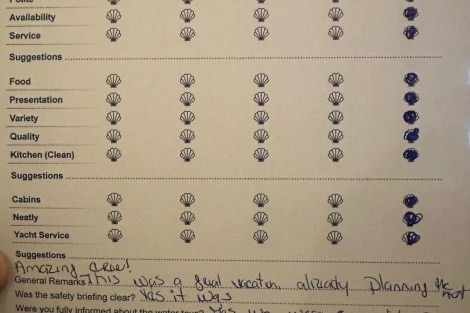 Polite
Availability
Service
Suggestions
Food
Presentation
Variety
Quality
Kitchen (Clean)
Suggestions
Cabins
Neatly
Yacht Service
Suggestions
Amazing crew!
General Remarks This was a great vacation already planning the next
Was the safety briefing clear? Yes it was
Were you fully informed about the water